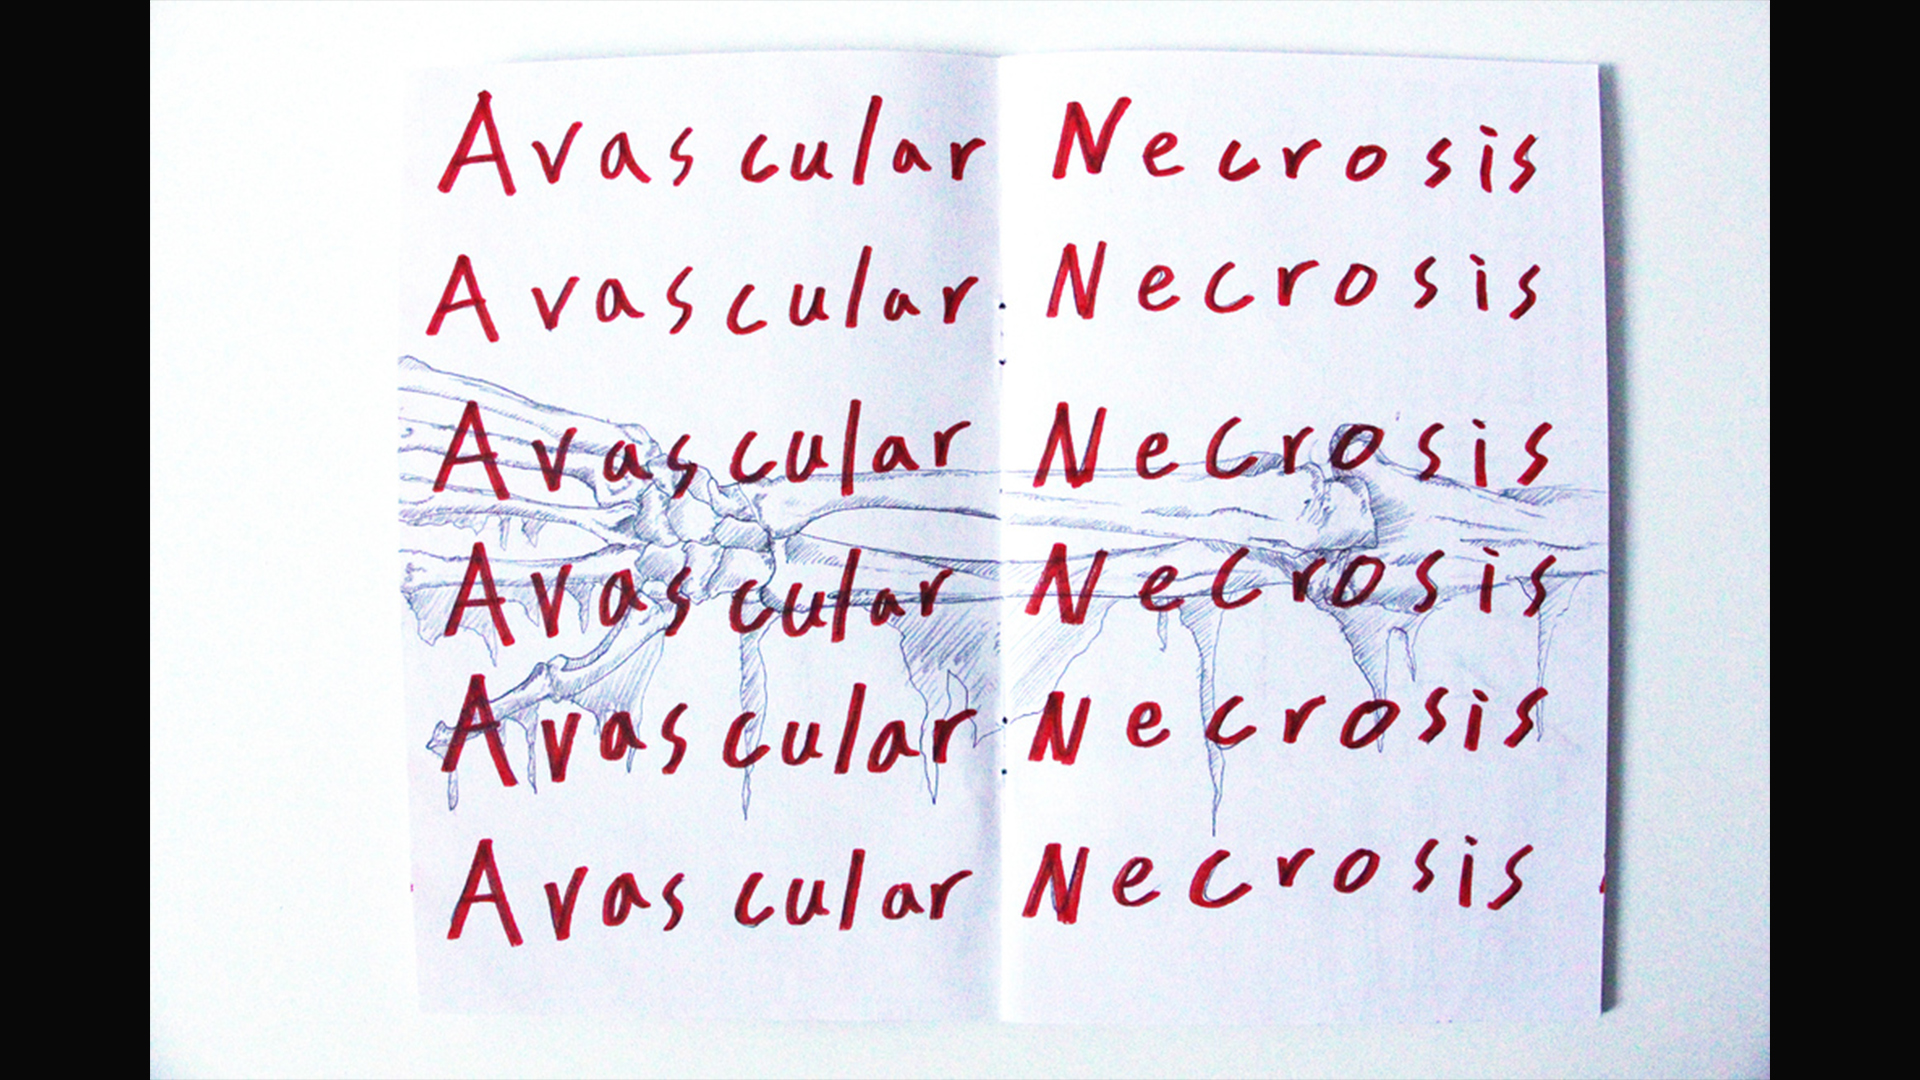 Avascular Necrosis
Avascular Necrosis
Avascular Necrosis
Avascular Necrosis
Avascular Necrosis
Avascular Necrosis